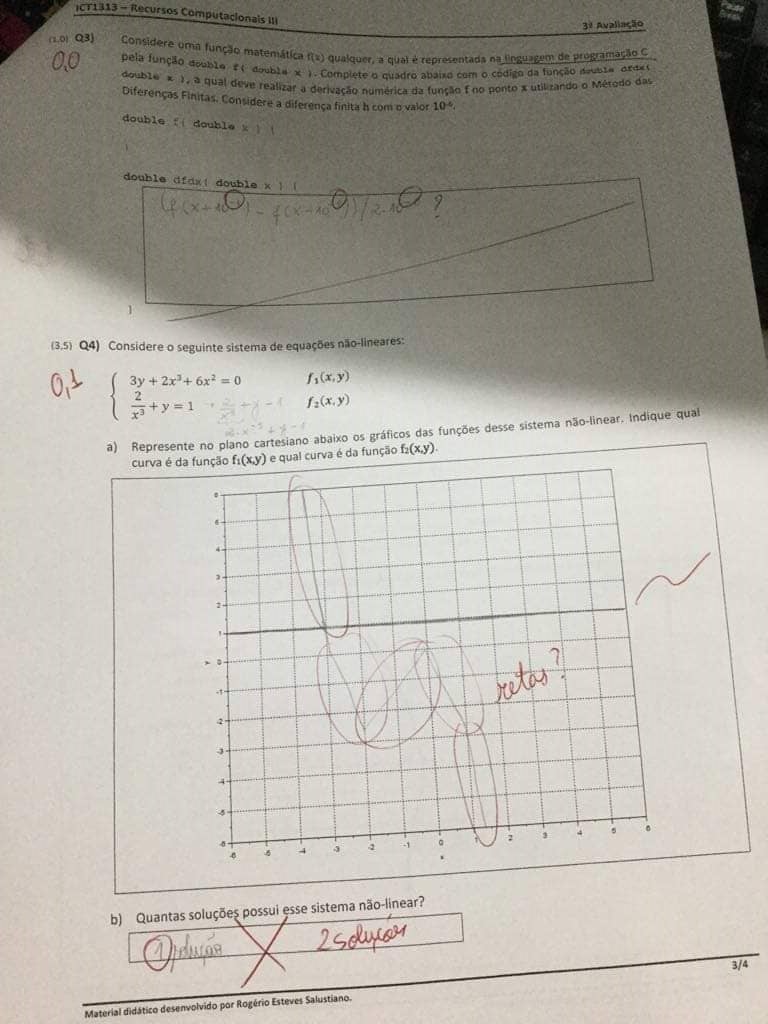 ICT1313 – Recursos Computacionais III
3ª Avaliação
(1,0) Q3) Considere uma função matemática f(x) qualquer, a qual é representada na linguagem de programação C
0,0 pela função double f( double x ). Complete o quadro abaixo com o código da função double dfdx(
double x ), a qual deve realizar a derivação numérica da função f no ponto x utilizando o Método das
Diferenças Finitas. Considere a diferença finita h com o valor 10⁻⁶.
double f( double x ) {
}
double dfdx( double x ) {
?
}
(3,5) Q4) Considere o seguinte sistema de equações não-lineares:
0,1
3y + 2x³ + 6x² = 0 f₁(x,y)
2/x³ + y = 1 f₂(x,y)
a) Represente no plano cartesiano abaixo os gráficos das funções desse sistema não-linear. Indique qual
curva é da função f₁(x,y) e qual curva é da função f₂(x,y).
6
5
4
3
2
1
y 0
-1
-2
-3
-4
-5
-6
retas?
-6 -5 -4 -3 -2 -1 0 1 2 3 4 5 6
x
b) Quantas soluções possui esse sistema não-linear?
1 solução 2 soluções
3/4
Material didático desenvolvido por Rogério Esteves Salustiano.